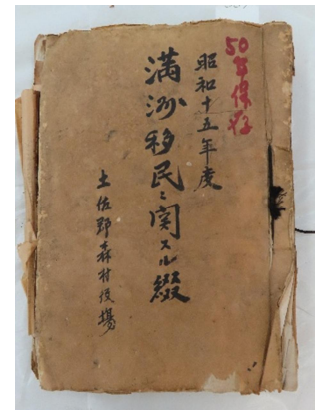 50年保存
昭和十五年度
満洲移民ニ関スル綴
土佐郡森村役場